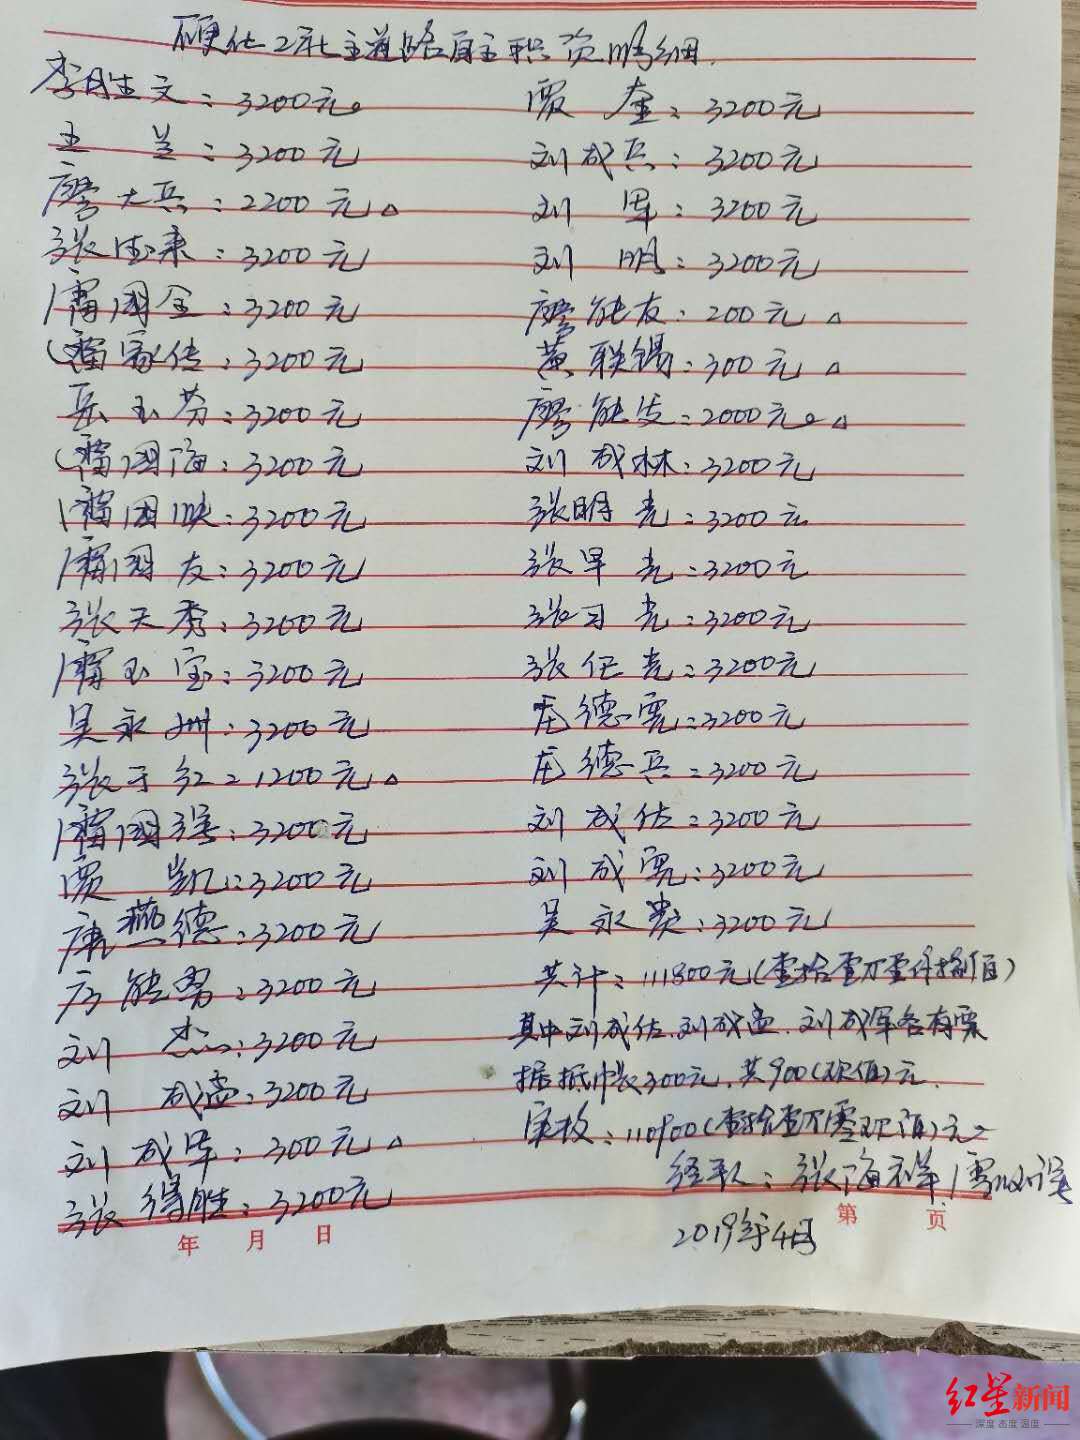 硬化2社主道路自主积资明细
李胜文：3200元。
王兰：3200元
廖大兵：2200元△
张德来：3200元
国全：3200元
家传：3200元
岳玉芬：3200元
国海：3200元
国映：3200元
国友：3200元
张天秀：3200元
玉宝：3200元
吴永州：3200元
张于红：1200元△
国强：3200元
贾凯：3200元
康燕德：3200元
能勇：3200元
刘杰：3200元
刘成孟：3200元
刘成军：300元△
张得胜：3200元
贾奎：3200元
刘成兵：3200元
刘军：3200元
刘明：3200元
廖能友：200元△
黄联锡：300元△
廖能发：2000元。△
刘成林：3200元
张明光：3200元
张早光：3200元
张习光：3200元
张任光：3200元
德宽：3200元
德兵：3200元
刘成佐：3200元
刘成宽：3200元
吴永贵：3200元
共计：111800元（壹拾壹万壹仟捌佰）
其中刘成佐、刘成孟、刘成军各有票
据抵冲长300元，共900（玖佰）元，
实收：110900（壹拾壹万零玖佰）元
经手人：张海祥
2019年4月
年 月 日
第 页
红星新闻
深度 态度 温度